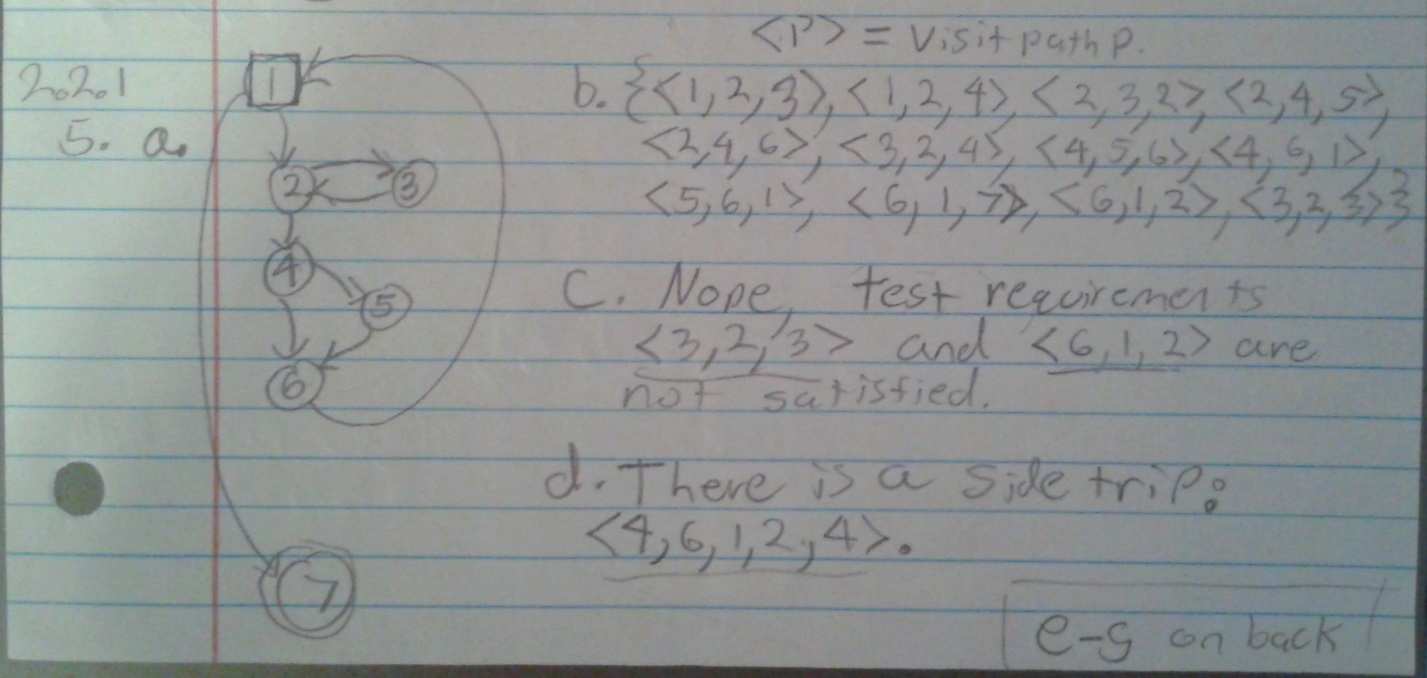 <P> = Visit path p.
2.2.1
5. a.
1
2
3
4
5
6
7
b. {<1,2,3>, <1,2,4>, <2,3,2>, <2,4,5>,
<2,4,6>, <3,2,4>, <4,5,6>, <4,6,1>,
<5,6,1>, <6,1,7>, <6,1,2>, <3,2,3>}
c. Nope, test requirements
<3,2,3> and <6,1,2> are
not satisfied.
d. There is a side trip:
<4,6,1,2,4>.
e-g on back